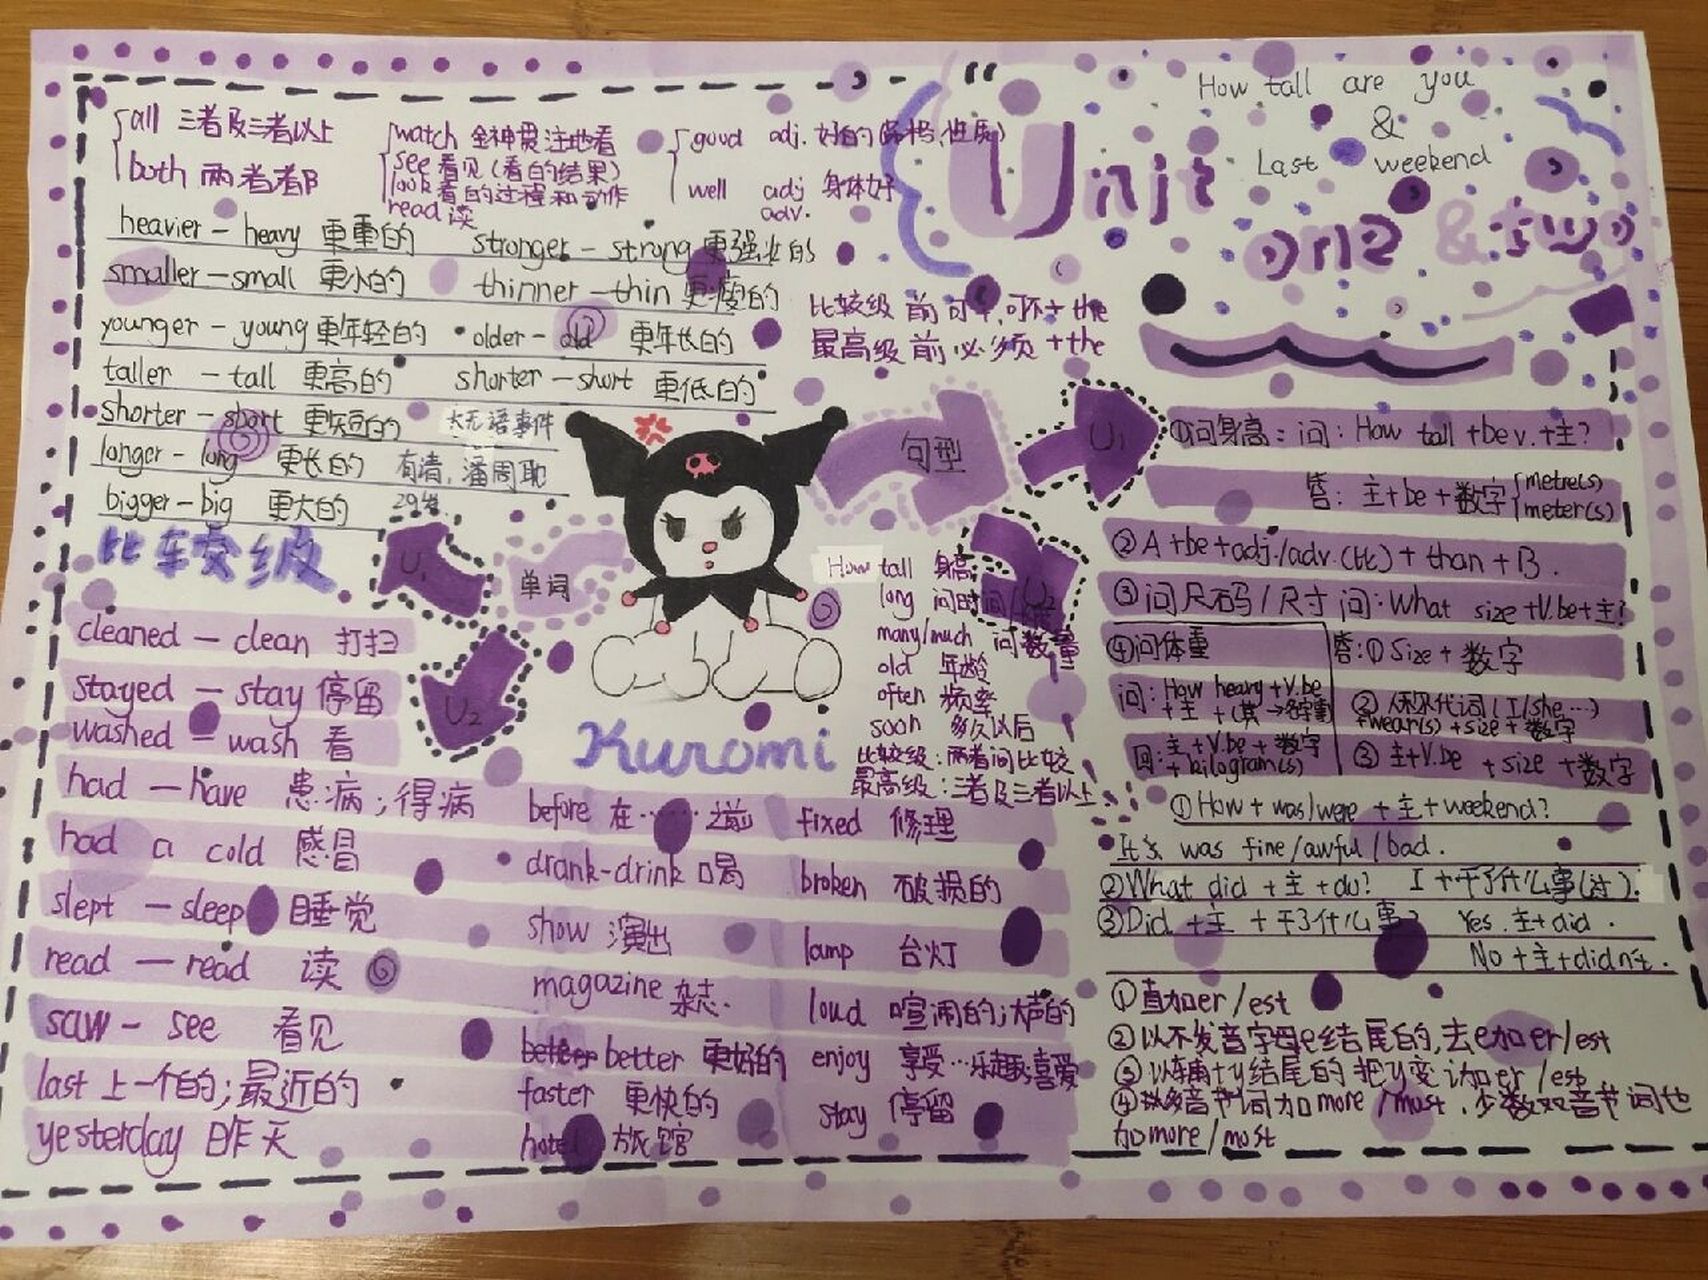 How tall are you
&
Last weekend
Unit
one & two
all 三者及三者以上
both 两者都
watch 全神贯注地看
see 看见(看的结果)
look 看的过程和动作
read 读
good adj. 好的(品格,性质)
well adj 身体好
adv.
heavier - heavy 更重的
stronger - strong 更强壮的
smaller - small 更小的
thinner - thin 更瘦的
younger - young 更年轻的
older - old 更年长的
taller - tall 更高的
shorter - short 更低的
shorter - short 更矮的
longer - long 更长的
bigger - big 更大的
大无语事件
比较级
比较级前可+,可不+the
最高级前必须+the
句型
U1
单词
U1
U2
U2
Kuromi
How tall 身高
long 问时间
many/much 问数量
old 年龄
often 频率
soon 多久以后
比较级:两者间比较
最高级:三者及三者以上
①问身高:问:How tall +be v.+主?
答:主+be+数字
metre(s)
meter(s)
②A+be+adj./adv.(比)+than+B.
③问尺码/尺寸 问:What size +V.be+主?
答:①Size+数字
②人称代词(I/she...)
+wear(s)+size+数字
③主+V.be +size +数字
④问体重
问:How heavy +V.be
回:主+V.be+数字
+kilogram(s)
①How+was/were +主+weekend?
It's was fine/awful/bad.
②What did +主+do? I+干了什么事(过).
③Did +主 +干了什么事? Yes.主+did.
No+主+didn't.
①直加er/est
②以不发音字母e结尾的,去e加er/est
③以辅+y结尾的把y变i加er/est
④多音节词加more/most.少数双音节词也
加more/most
cleaned - clean 打扫
stayed - stay 停留
washed - wash 看
had - have 患病;得病
had a cold 感冒
slept - sleep 睡觉
read - read 读
saw - see 看见
last 上一个的;最近的
yesterday 昨天
before 在……之前
drank-drink 喝
show 演出
magazine 杂志.
better better 更好的
faster 更快的
hotel 旅馆
fixed 修理
broken 破损的
lamp 台灯
loud 喧闹的;大声的
enjoy 享受…乐趣;喜爱
stay 停留